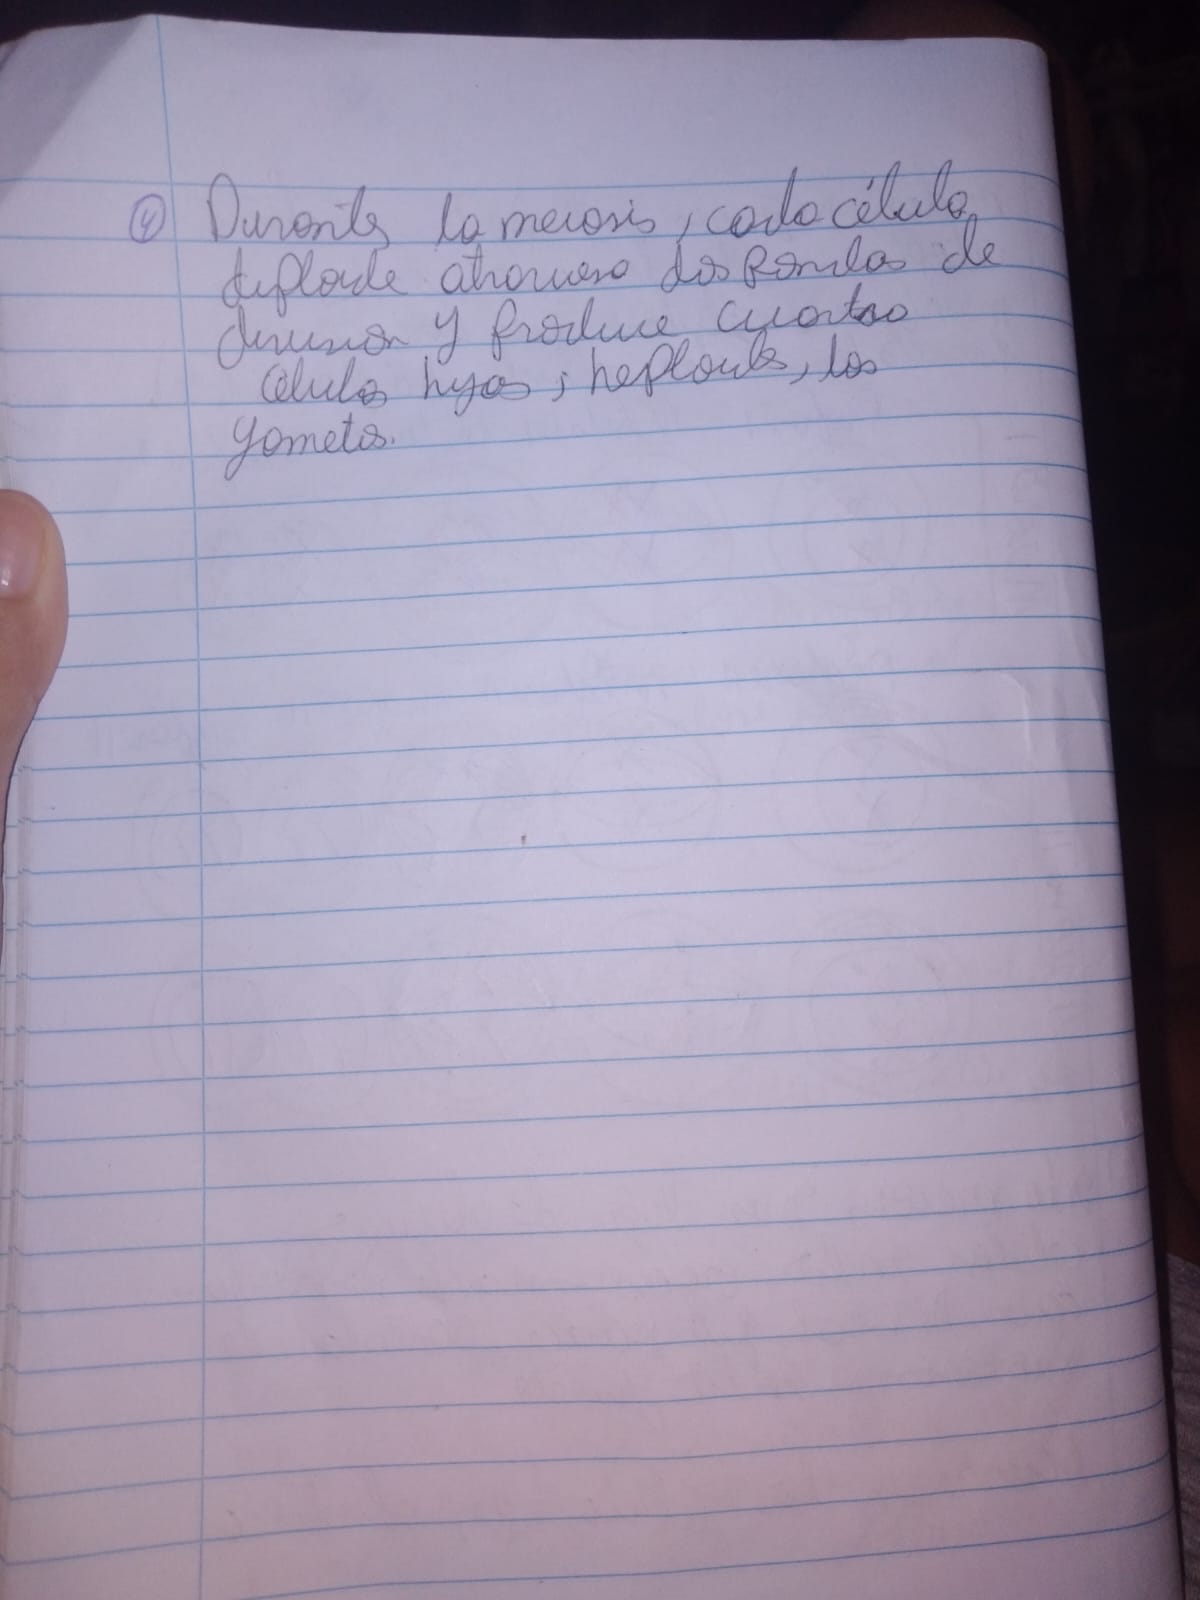 ④ Durante la meiosis, cada célula
diploide atraviesa dos rondas de
division y produce cuatro
células hijas; haploide, los
gametos.